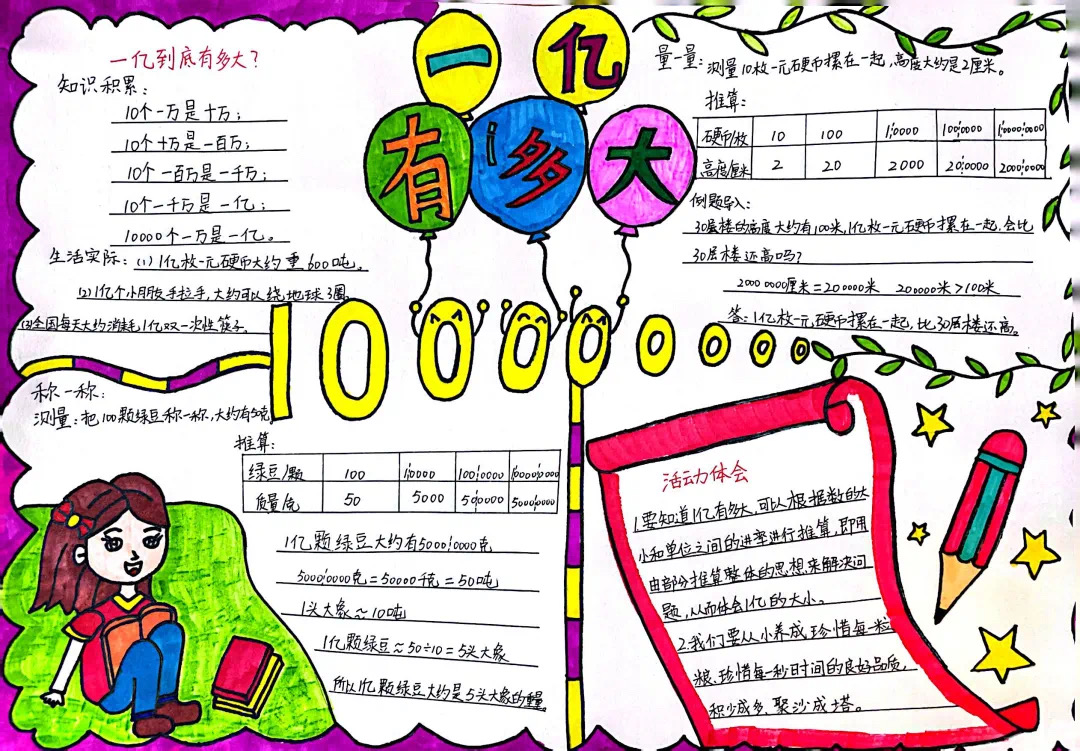 一亿有多大
100000000
一亿到底有多大?
知识积累:
10个一万是十万;
10个十万是一百万;
10个一百万是一千万;
10个一千万是一亿;
10000个一万是一亿。
生活实际:(1)1亿枚一元硬币大约重600吨。
(2)1亿个小朋友手拉手,大约可以绕地球3圈。
(3)全国每天大约消耗1亿双一次性筷子。
量一量:测量10枚一元硬币摞在一起,高度大约是2厘米。
推算:
硬币/枚 10 100 10000 1000000 100000000
高度/厘米 2 20 2000 200000 20000000
例题导入:
30层楼的高度大约有100米,1亿枚一元硬币摞在一起,会比
30层楼还高吗?
20000000厘米=200000米 200000米>100米
答:1亿枚一元硬币摞在一起,比30层楼还高。
称一称:
测量:把100颗绿豆称一称,大约有50克
推算:
绿豆/颗 100 10000 1000000 100000000
质量/克 50 5000 500000 50000000
1亿颗绿豆大约有50000000克
50000000克=50000千克=50吨
1头大象≈10吨
1亿颗绿豆≈50÷10=5头大象
所以1亿颗绿豆大约是5头大象的重量
活动体会
1.要知道1亿有多大,可以根据数的大
小和单位之间的进率进行推算,即用
由部分推算整体的思想来解决问
题,从而体会1亿的大小。
2.我们要从小养成珍惜每一粒
粮、珍惜每一秒时间的良好品质,
积少成多,聚沙成塔。